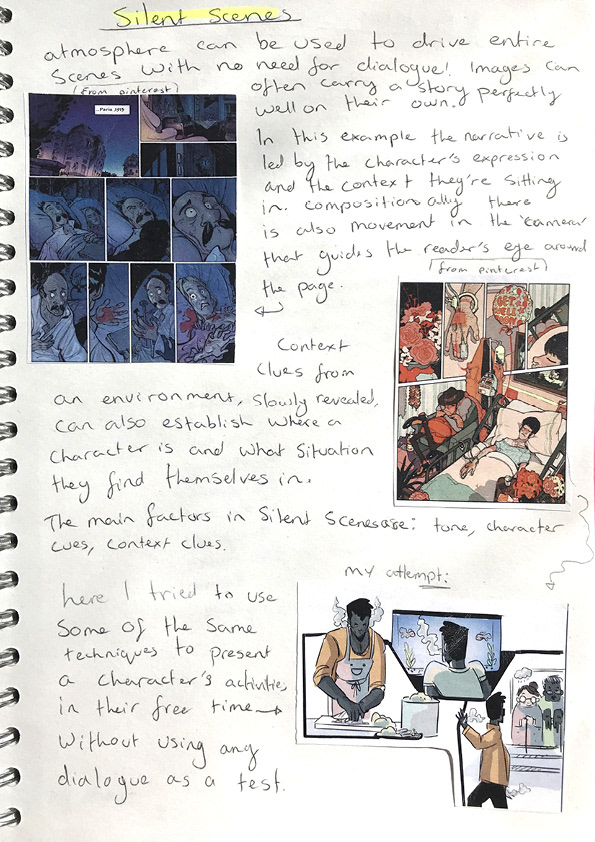 Silent Scenes
atmosphere can be used to drive entire
Scenes with no need for dialogue! Images can
(from pinterest)
often carry a story perfectly
well on their own.
...Paris 1919
In this example the narrative is
led by the character's expression
and the context they're sitting
in. compositionally there
is also movement in the 'camera'
that guides the reader's eye around
(from pinterest)
the page.
GET WELL SOON
Context
clues from
an environment, slowly revealed,
can also establish where a
character is and what situation
they find themselves in.
The main factors in Silent Scenes are: tone, character
cues, context clues.
my attempt:
here I tried to use
Some of the Same
techniques to present
a character's activities
in their free time
without using any
dialogue as a test.